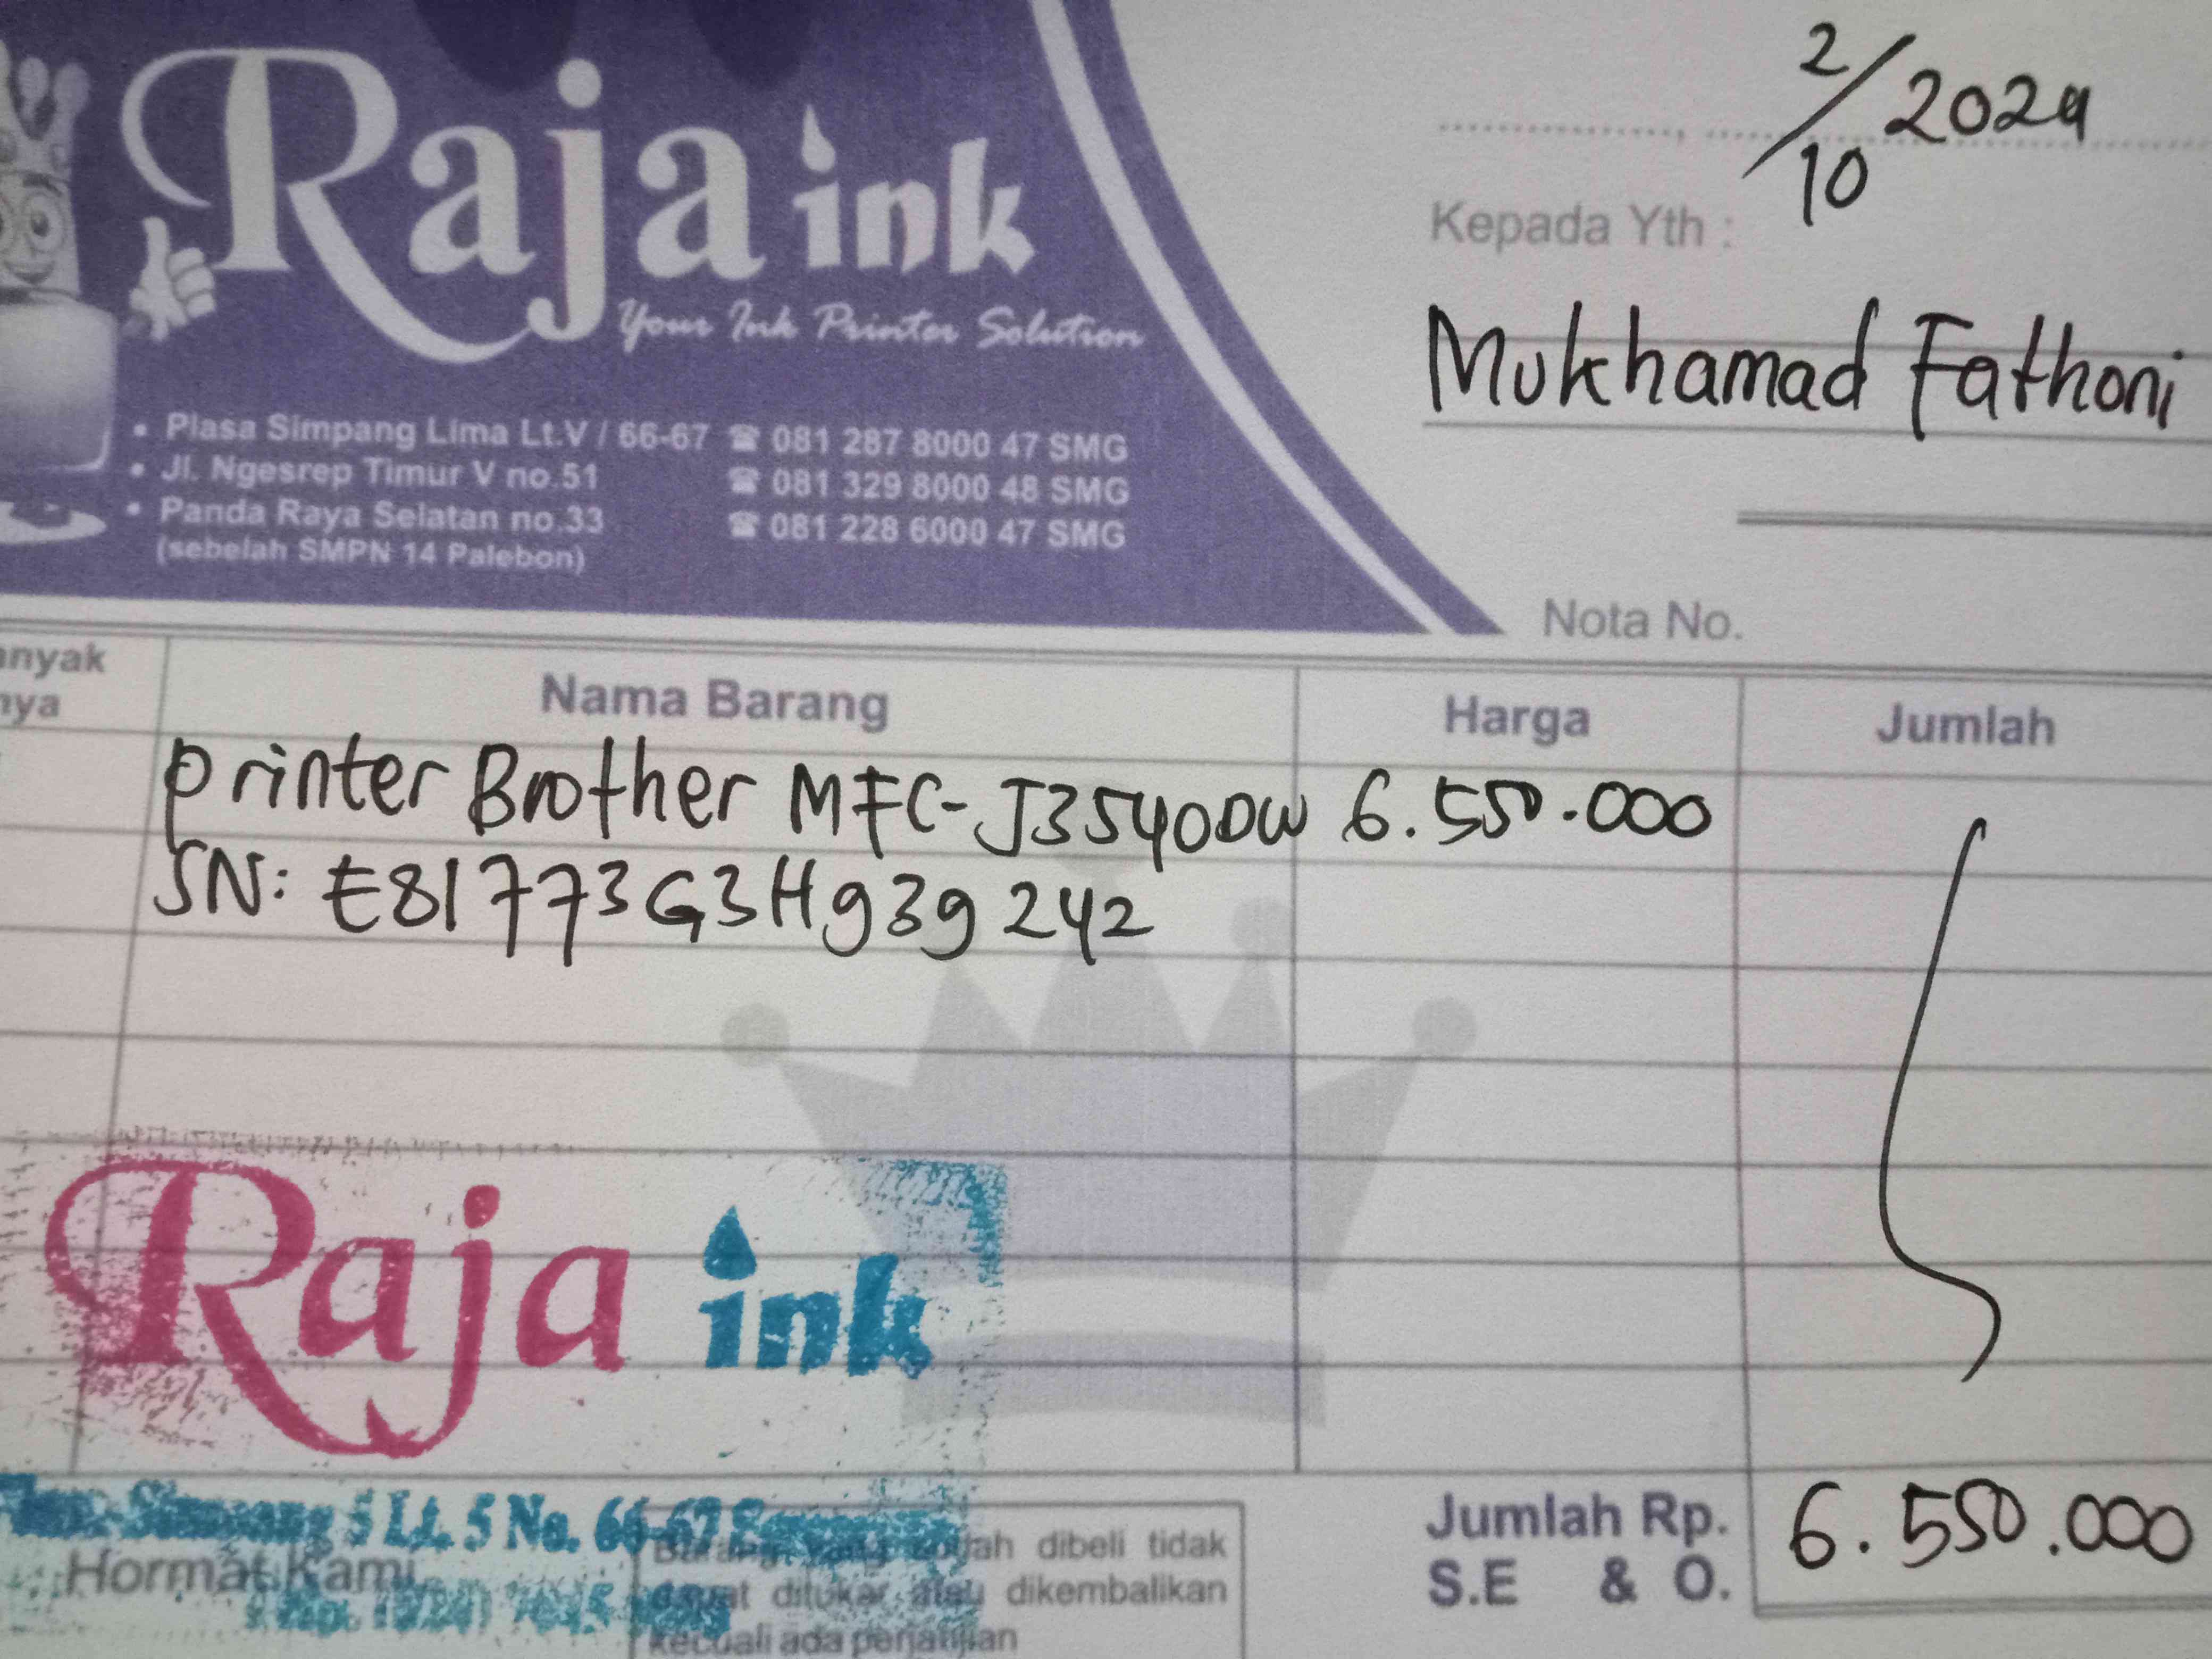 Raja ink
Your Ink Printer Solution
• Plasa Simpang Lima Lt.V / 66-67 ☎ 081 287 8000 47 SMG
• Jl. Ngesrep Timur V no.51 ☎ 081 329 8000 48 SMG
• Panda Raya Selatan no.33 ☎ 081 228 6000 47 SMG
(sebelah SMPN 14 Palebon)
2/10 2024
Kepada Yth :
Mukhamad Fathoni
Nota No.
anyak
nya
Nama Barang Harga Jumlah
Printer Brother MFC-J3540DW 6.550.000
SN: E81773G3H939242
Raja ink
5 Lt. 5 No. 66-67
Hormat Kami
Barang yang dibeli tidak
dapat ditukar atau dikembalikan
kecuali ada perjanjian
Jumlah Rp. 6.550.000
S.E & O.